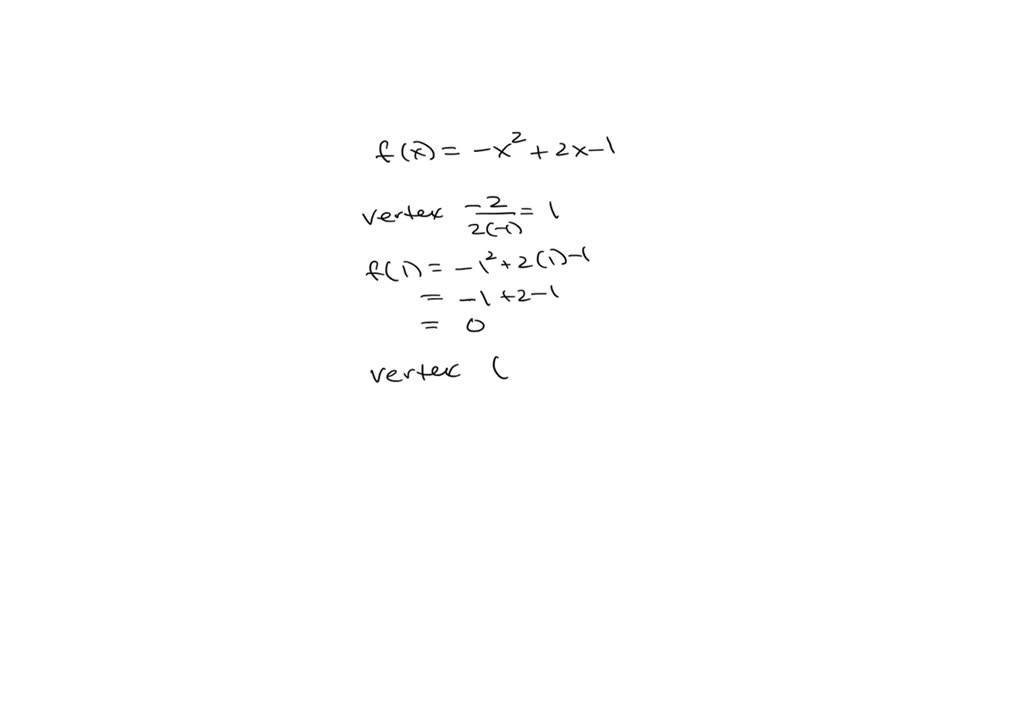 f(x) = -x² + 2x-1
vertex -2/2(-1) = 1
f(1) = -1² + 2(1)-1
= -1 +2-1
= 0
vertex (